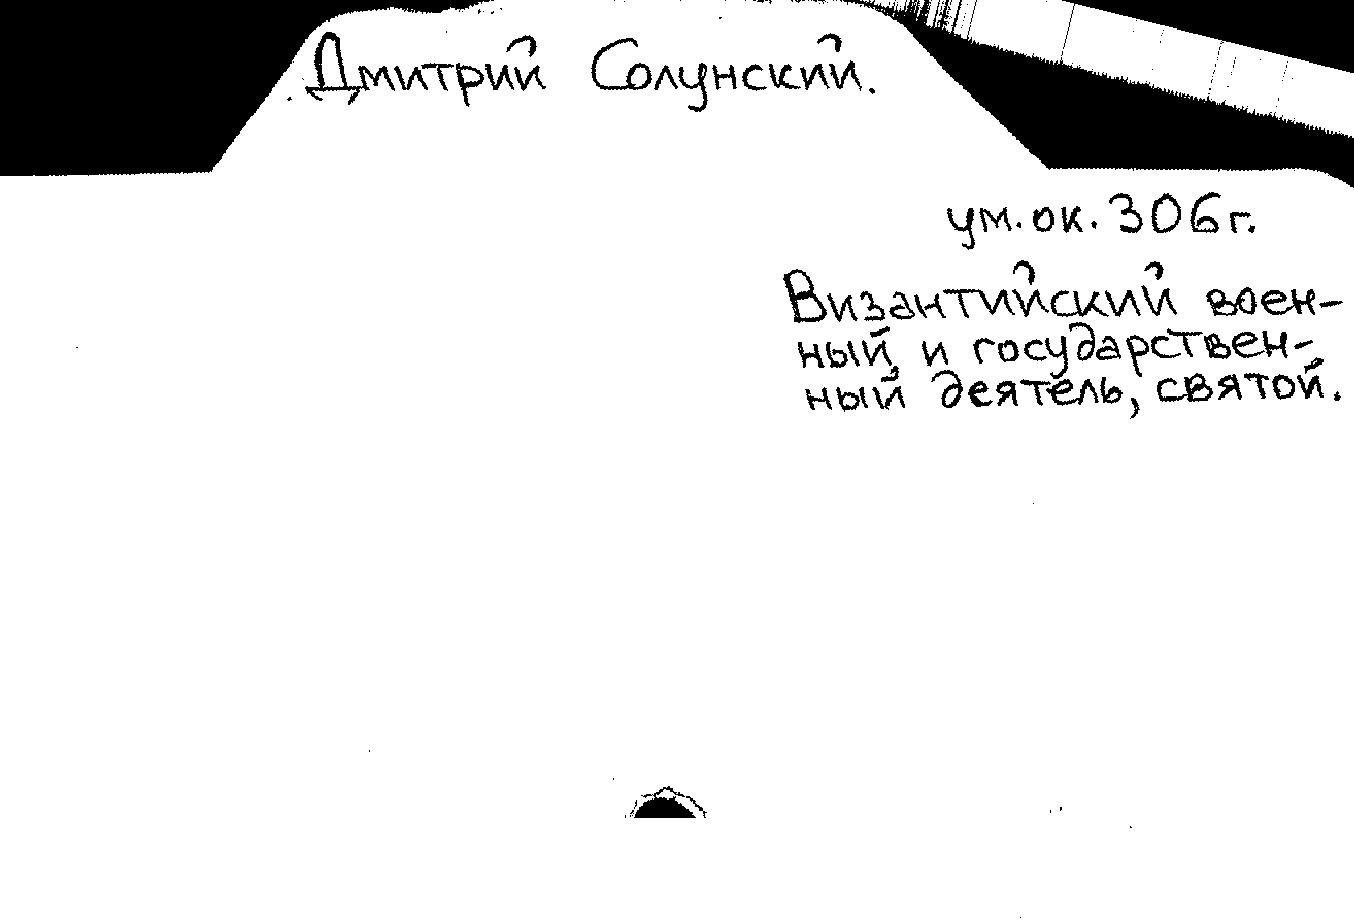 Дмитрий Солунский.
ум. ок. 306 г.
Византийский воен-
ный и государствен-
ный деятель, святой.